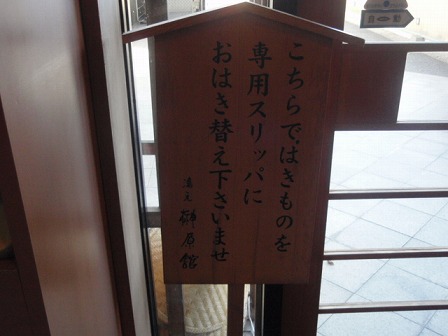 こちらで、はきものを
専用スリッパに
おはき替え下さいませ